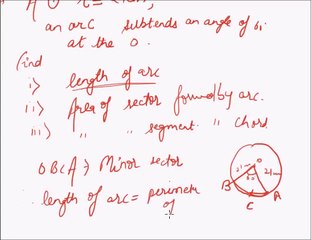 an arc subtends an angle of 60
at the O.
find
i) length of arc
ii) Area of sector formed by arc.
iii) " " segment " chord
OBCA → Minor sector
length of arc = perimete
of
O
21
60
21
B
A
C